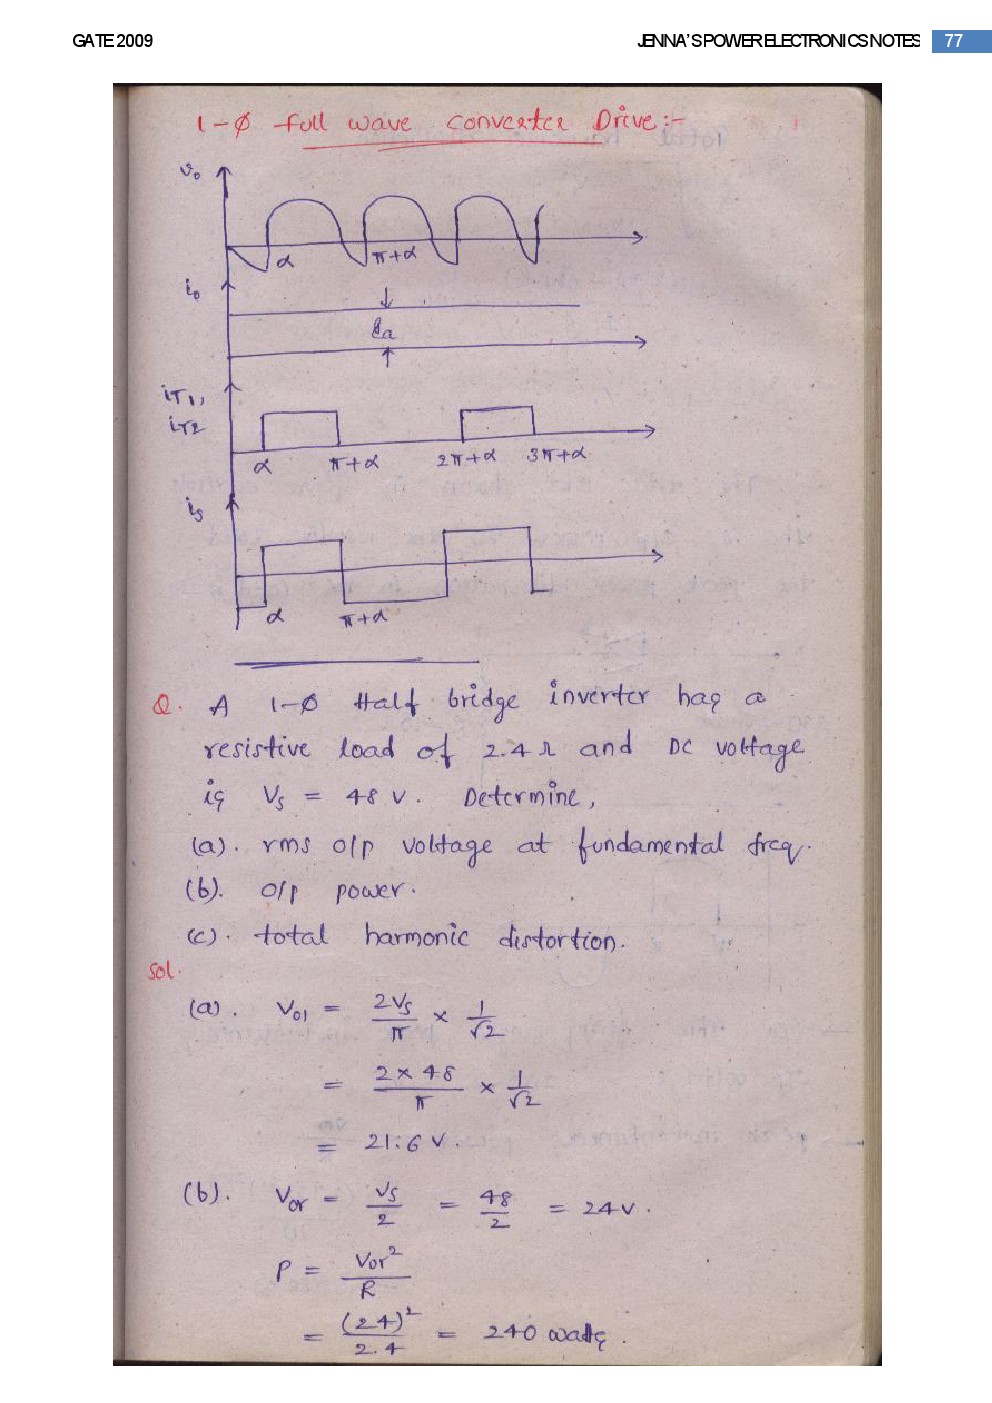 GATE 2009 JENNA'S POWER ELECTRONICS NOTES 77
1-ϕ full wave converter Drive:-
v₀
α π+α
i₀
Ia
iT1,
iT2
α π+α 2π+α 3π+α
is
α π+α
Q. A 1-ϕ Half bridge inverter has a
resistive load of 2.4 Ω and DC voltage
is Vs = 48 V. Determine,
(a). rms o/p voltage at fundamental freq.
(b). o/p power.
(c). total harmonic distortion.
Sol.
(a). V01 = 2Vs/π × 1/√2
= 2×48/π × 1/√2
= 21.6 V.
(b). Vor = Vs/2 = 48/2 = 24V.
P = Vor²/R
= (24)²/2.4 = 240 watts.